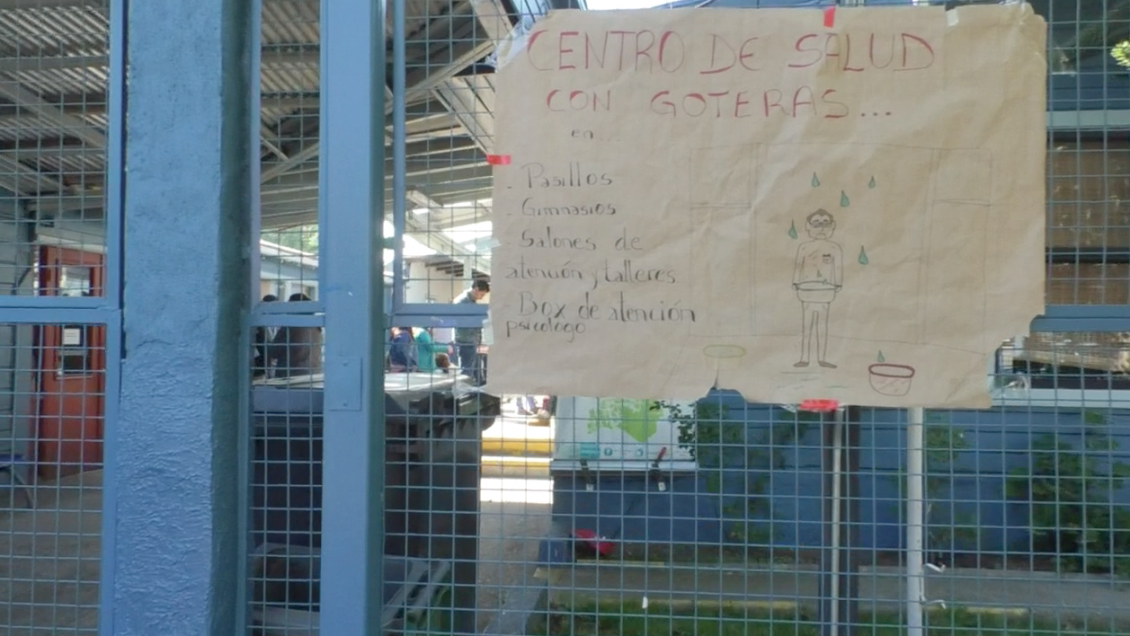 CENTRO DE SALUD
CON GOTERAS...
en...
- Pasillos
- Gimnasios
- Salones de
atención y talleres
- Box de atención
psicólogo